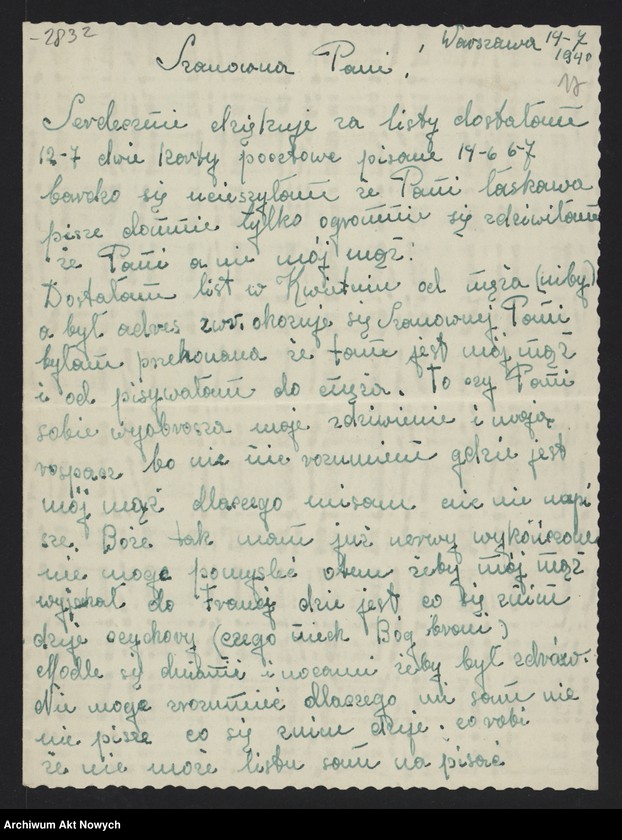 -2832
Warszawa 14-7
1940
Szanowna Pani!
Serdecznie dziękuje za listy dostałam
12-7 dwie karty pocztowe pisane 14-6 6-7
bardzo się ucieszyłam że Pani łaskawa
pisze domnie tylko ogromnie się zdziwiłam
że Pani a nie mój mąż.
Dostałam list w Kwietniu od męża (niby)
a był adres zwr. okazuje się Szanownej Pani
byłam przekonana że tam jest mój mąż
i od pisywałam do męża. To czy Pani
sobie wyobrasza moje zdziwienie i moją
rozpacz bo nic nie rozumiem gdzie jest
mój mąż dlaczego misam nic nie napi
sze. Boże tak mam już nerwy wykończone
nie moge pomysleć otem żeby mój mąż
wyjechał do Francj dzie jest co się znim
dzije czychory (czego niech Bóg broni)
Modle się dniami i nocami żeby był zdrów.
Nie moge zrozumieć dlaczego mi sam nic
nie pisze co się znim dzije. co robi
że nie może listu sam na pisać
Archiwum Akt Nowych